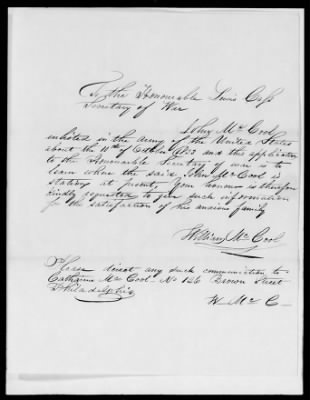 To the Honourable Lewis Cass
Secretary of War
John Mc Cool
enlisted in the army of the United States
about the 10th of October 1833 and this application
to the Honourable Secretary of war is to
learn where the said John Mc Cool is
stationed at present, Your honour is therefore
kindly requested to give such information
for the satisfaction of his anxious family
William Mc Cool
Please direct any such communication to
Catharine Mc Cool No 126 Brown Street
Philadelphia
W Mc C